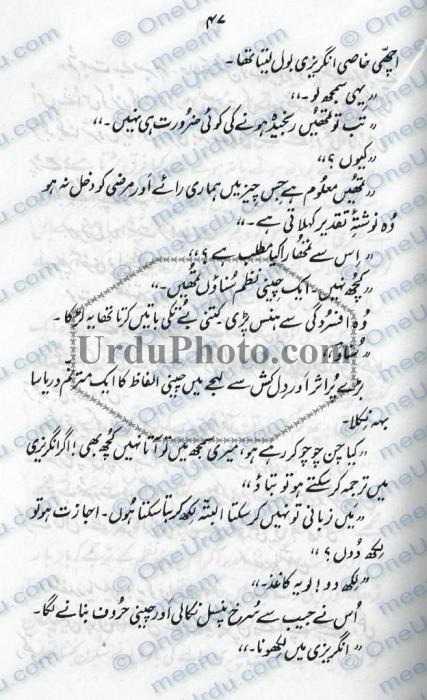 ۴۷
اچھی خاصی انگریزی بول لیتا تھا۔
”یہی سمجھ لو۔“
”تب تو تمھیں رنجیدہ ہونے کی کوئی ضرورت ہی نہیں۔“
”کیوں؟“
”تمھیں معلوم ہے جس چیز میں ہماری رائے اور مرضی کو دخل نہ ہو
وُہ نوشتۂ تقدیر کہلاتی ہے۔“
”اِس سے تمھارا کیا مطلب ہے؟“
”کچھ نہیں۔ ایک چینی نظم سُناؤں تمھیں۔“
وُہ افسردگی سے ہنس پڑی کتنی بے تُکی باتیں کرتا تھا یہ لڑکا۔
”سُناؤ۔“
بڑے پُراثر اور دِل کش سے لہجے میں چینی الفاظ کا ایک مترنم دریا سا
بہہ نکلا۔
”کیا چن چوچو کر رہے ہو، میری سمجھ میں تو آتا نہیں کچھ بھی! اگر انگریزی
میں ترجمہ کر سکتے ہو تو بتاؤ“
”میں زبانی تو نہیں کر سکتا البتہ لکھ کر بتا سکتا ہُوں۔ اجازت ہو تو
لکھ دُوں؟“
”لکھ دو! لو یہ کاغذ۔“
اُس نے جیب سے سُرخ پنسل نکالی اور چینی حُروف بنانے لگا۔
”انگریزی میں لکھو نا۔“
UrduPhoto.com
© OneUrdu.com
meem